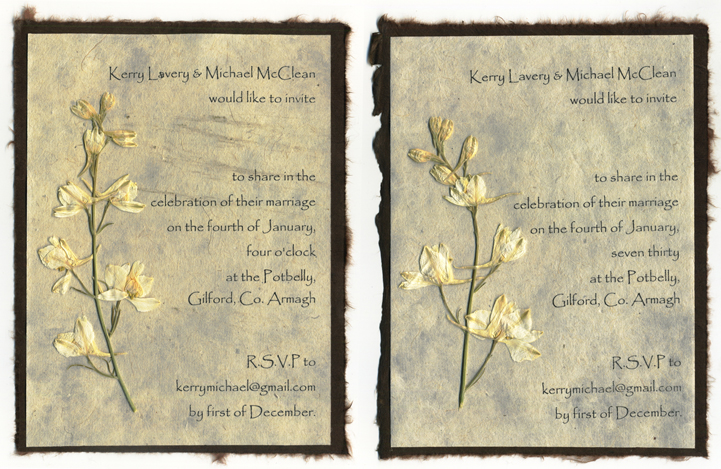 Kerry Lavery & Michael McClean
would like to invite
to share in the
celebration of their marriage
on the fourth of January,
four o'clock
at the Potbelly,
Gilford, Co. Armagh
R.S.V.P to
kerrymichael@gmail.com
by first of December.
Kerry Lavery & Michael McClean
would like to invite
to share in the
celebration of their marriage
on the fourth of January,
seven thirty
at the Potbelly,
Gilford, Co. Armagh
R.S.V.P to
kerrymichael@gmail.com
by first of December.